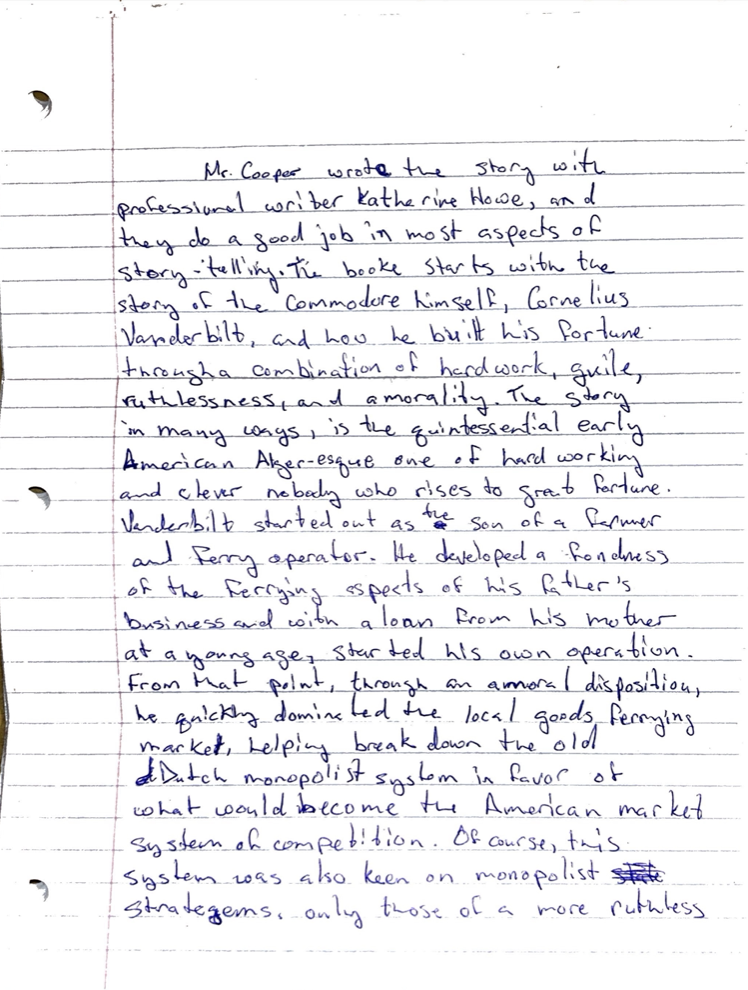 Mr. Cooper wrote the story with
professional writer Katherine Howe, and
they do a good job in most aspects of
story-telling. The booke starts with the
story of the Commodore himself, Cornelius
Vanderbilt, and how he built his fortune
through a combination of hard work, guile,
ruthlessness, and amorality. The story
in many ways, is the quintessential early
American Alger-esque one of hard working
and clever nobody who rises to great fortune.
Vanderbilt started out as the son of a farmer
and ferry operator. He developed a fondness
of the ferrying aspects of his father's
business and with a loan from his mother
at a young age, started his own operation.
From that point, through an ammoral disposition,
he quickly dominated the local goods ferrying
market, helping break down the old
Dutch monopolist system in favor of
what would become the American market
system of competition. Of course, this
system was also keen on monopolist
strategems, only those of a more ruthless